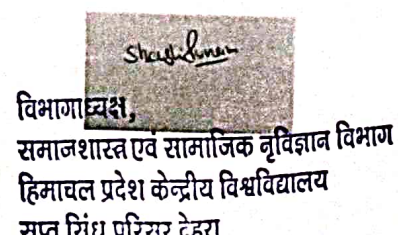 विभागाध्यक्ष,
समाजशास्त्र एवं सामाजिक नृविज्ञान विभाग
हिमाचल प्रदेश केन्द्रीय विश्वविद्यालय
सप्त सिंधु परिसर देहरा